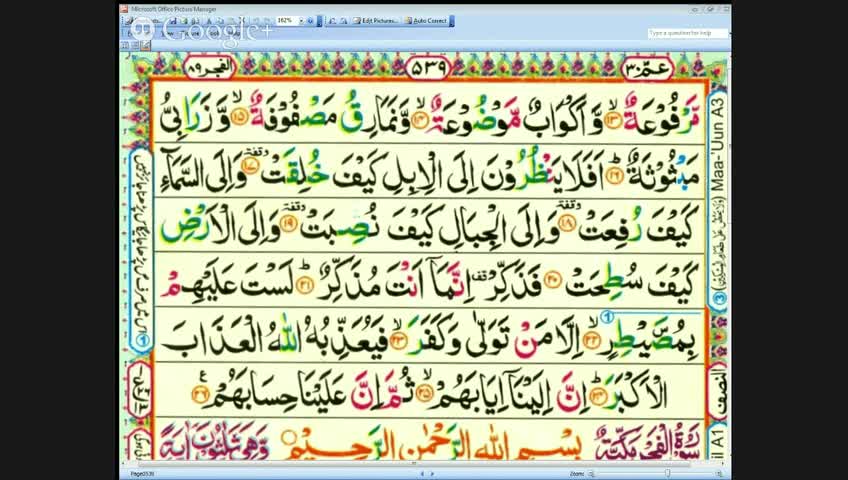 Microsoft Office Picture Manager
Google+
162%
Edit Pictures...
Auto Correct
Type a question for help
الفجر ٨٩
٥٣٩
عم ٣٠
مَّرْفُوْعَةٌ ۙ‏﴿۱۳﴾ وَّاَكْوَابٌ مَّوْضُوْعَةٌ ۙ‏﴿۱۴﴾ وَّنَمَارِقُ مَصْفُوْفَةٌ ۙ‏﴿۱۵﴾ وَّزَرَابِىُّ
مَبْثُوْثَةٌ ؕ‏﴿۱۶﴾ اَفَلَا يَنْظُرُوْنَ اِلَى الْاِبِلِ كَيْفَ خُلِقَتْ ﴿۱۷﴾ وَاِلَى السَّمَآءِ
كَيْفَ رُفِعَتْ ﴿۱۸﴾ وَاِلَى الْجِبَالِ كَيْفَ نُصِبَتْ ﴿۱۹﴾ وَاِلَى الْاَرْضِ
كَيْفَ سُطِحَتْ ﴿۲۰﴾ فَذَكِّرْ اِنَّمَاۤ اَنْتَ مُذَكِّرٌ ؕ‏﴿۲۱﴾ لَسْتَ عَلَيْهِمْ
بِمُصَۜيْطِرٍ ۙ‏﴿۲۲﴾ اِلَّا مَنْ تَوَلّٰى وَكَفَرَ ۙ‏﴿۲۳﴾ فَيُعَذِّبُهُ اللّٰهُ الْعَذَابَ
الْاَكْبَرَ ؕ‏﴿۲۴﴾ اِنَّ اِلَيْنَاۤ اِيَابَهُمْ ۙ‏﴿۲۵﴾ ثُمَّ اِنَّ عَلَيْنَا حِسَابَهُمْ ﴿۲۶﴾
سُوْرَةُ الْفَجْرِ مَكِّيَّةٌ بِسْمِ اللّٰهِ الرَّحْمٰنِ الرَّحِيْمِ وَّهِىَ ثَلٰثُوْنَ اٰيَةً
Maa-'Uun A3
النصف
A1
Page0539
Zoom: